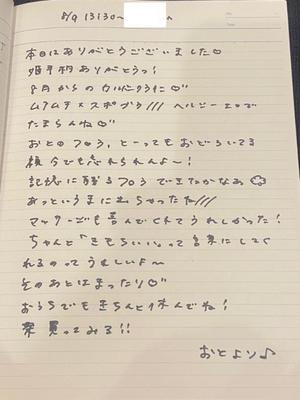 5/9 13:30〜
本日はありがとうございました♡
ありがとうっ!
8月からの
ムチムチ×スポブラ///ヘルシーエロで
たまらんね♡
おとのフロう、とーってもおどろいてる
顔今でも忘れられんよ〜!
記憶に残るフロうできたかなあ
あっというまに
マッサージも喜んでくれてうれしかった!
ちゃんと「きもちいい」って言葉にしてく
れるのってうれしいよ〜
そのあとはまったり♡
おうちでもきちんと休んでね!
買ってみる!!
おとより♪